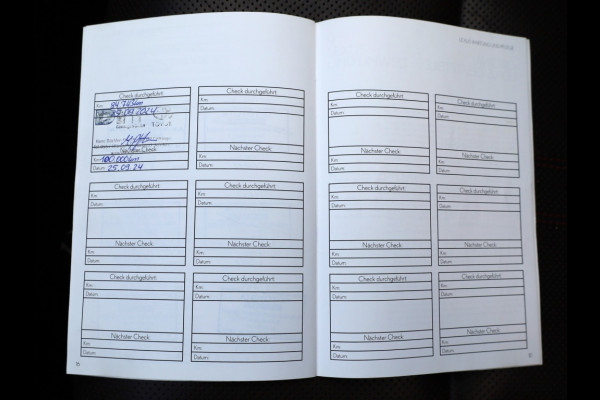 Check durchgeführt:
Km: 84.745km
Nächster Check:
Km: 100.000km
Datum: 25.09.24
Check durchgeführt:
Km:
Datum:
Nächster Check:
Km:
Datum:
Check durchgeführt:
Km:
Datum:
Nächster Check:
Km:
Datum:
Check durchgeführt:
Km:
Datum:
Nächster Check:
Km:
Datum:
Check durchgeführt:
Km:
Datum:
Nächster Check:
Km:
Datum:
Check durchgeführt:
Km:
Datum:
Nächster Check:
Km:
Datum:
Check durchgeführt:
Km:
Datum:
Nächster Check:
Km:
Datum:
Check durchgeführt:
Km:
Datum:
Nächster Check:
Km:
Datum:
Check durchgeführt:
Km:
Datum:
Nächster Check:
Km:
Datum:
Check durchgeführt:
Km:
Datum:
Nächster Check:
Km:
Datum:
Check durchgeführt:
Km:
Datum:
Nächster Check:
Km:
Datum:
Check durchgeführt:
Km:
Datum:
Nächster Check:
Km:
Datum: